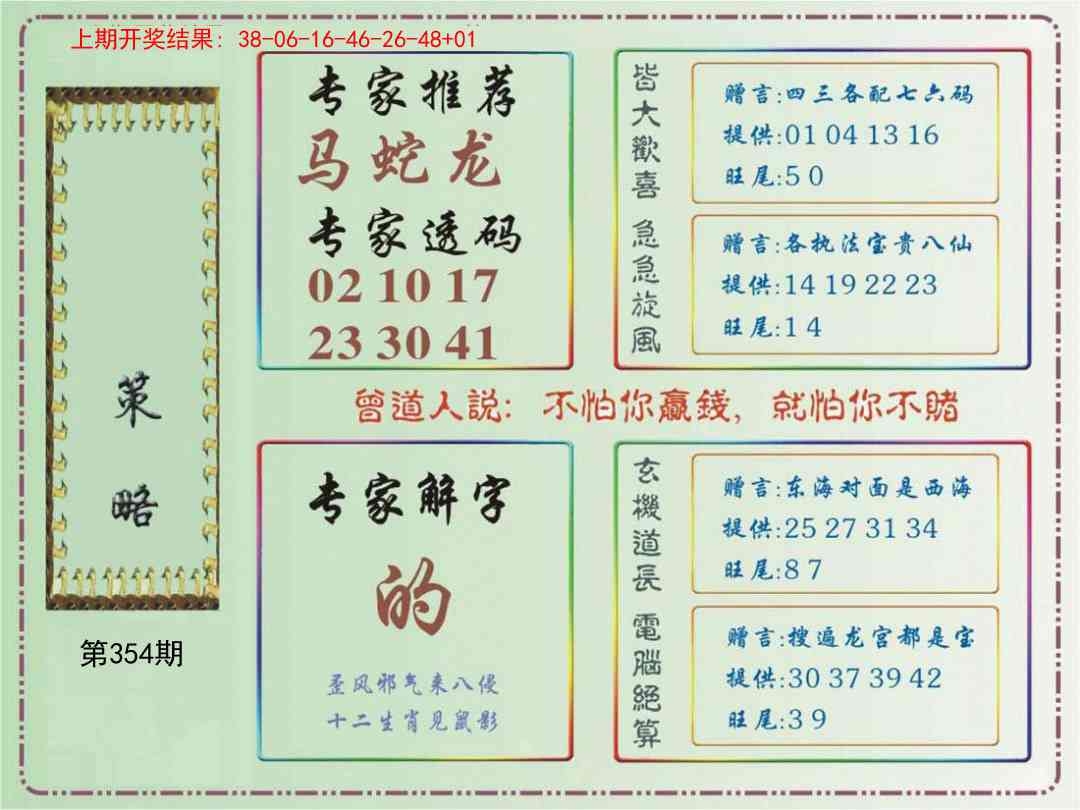 上期开奖结果: 38-06-16-46-26-48+01
策略
第354期
专家推荐
马蛇龙
专家透码
02 10 17
23 30 41
皆大歡喜
赠言:四三各配七六码
提供:01 04 13 16
旺尾:5 0
急急旋風
赠言:各执法宝贵八仙
提供:14 19 22 23
旺尾:1 4
曾道人説: 不怕你贏錢, 就怕你不賭
专家解字
的
歪风邪气来八侵
十二生肖见鼠影
玄機道長
赠言:东海对面是西海
提供:25 27 31 34
旺尾:8 7
電腦絕算
赠言:搜遍龙宫都是宝
提供:30 37 39 42
旺尾:3 9